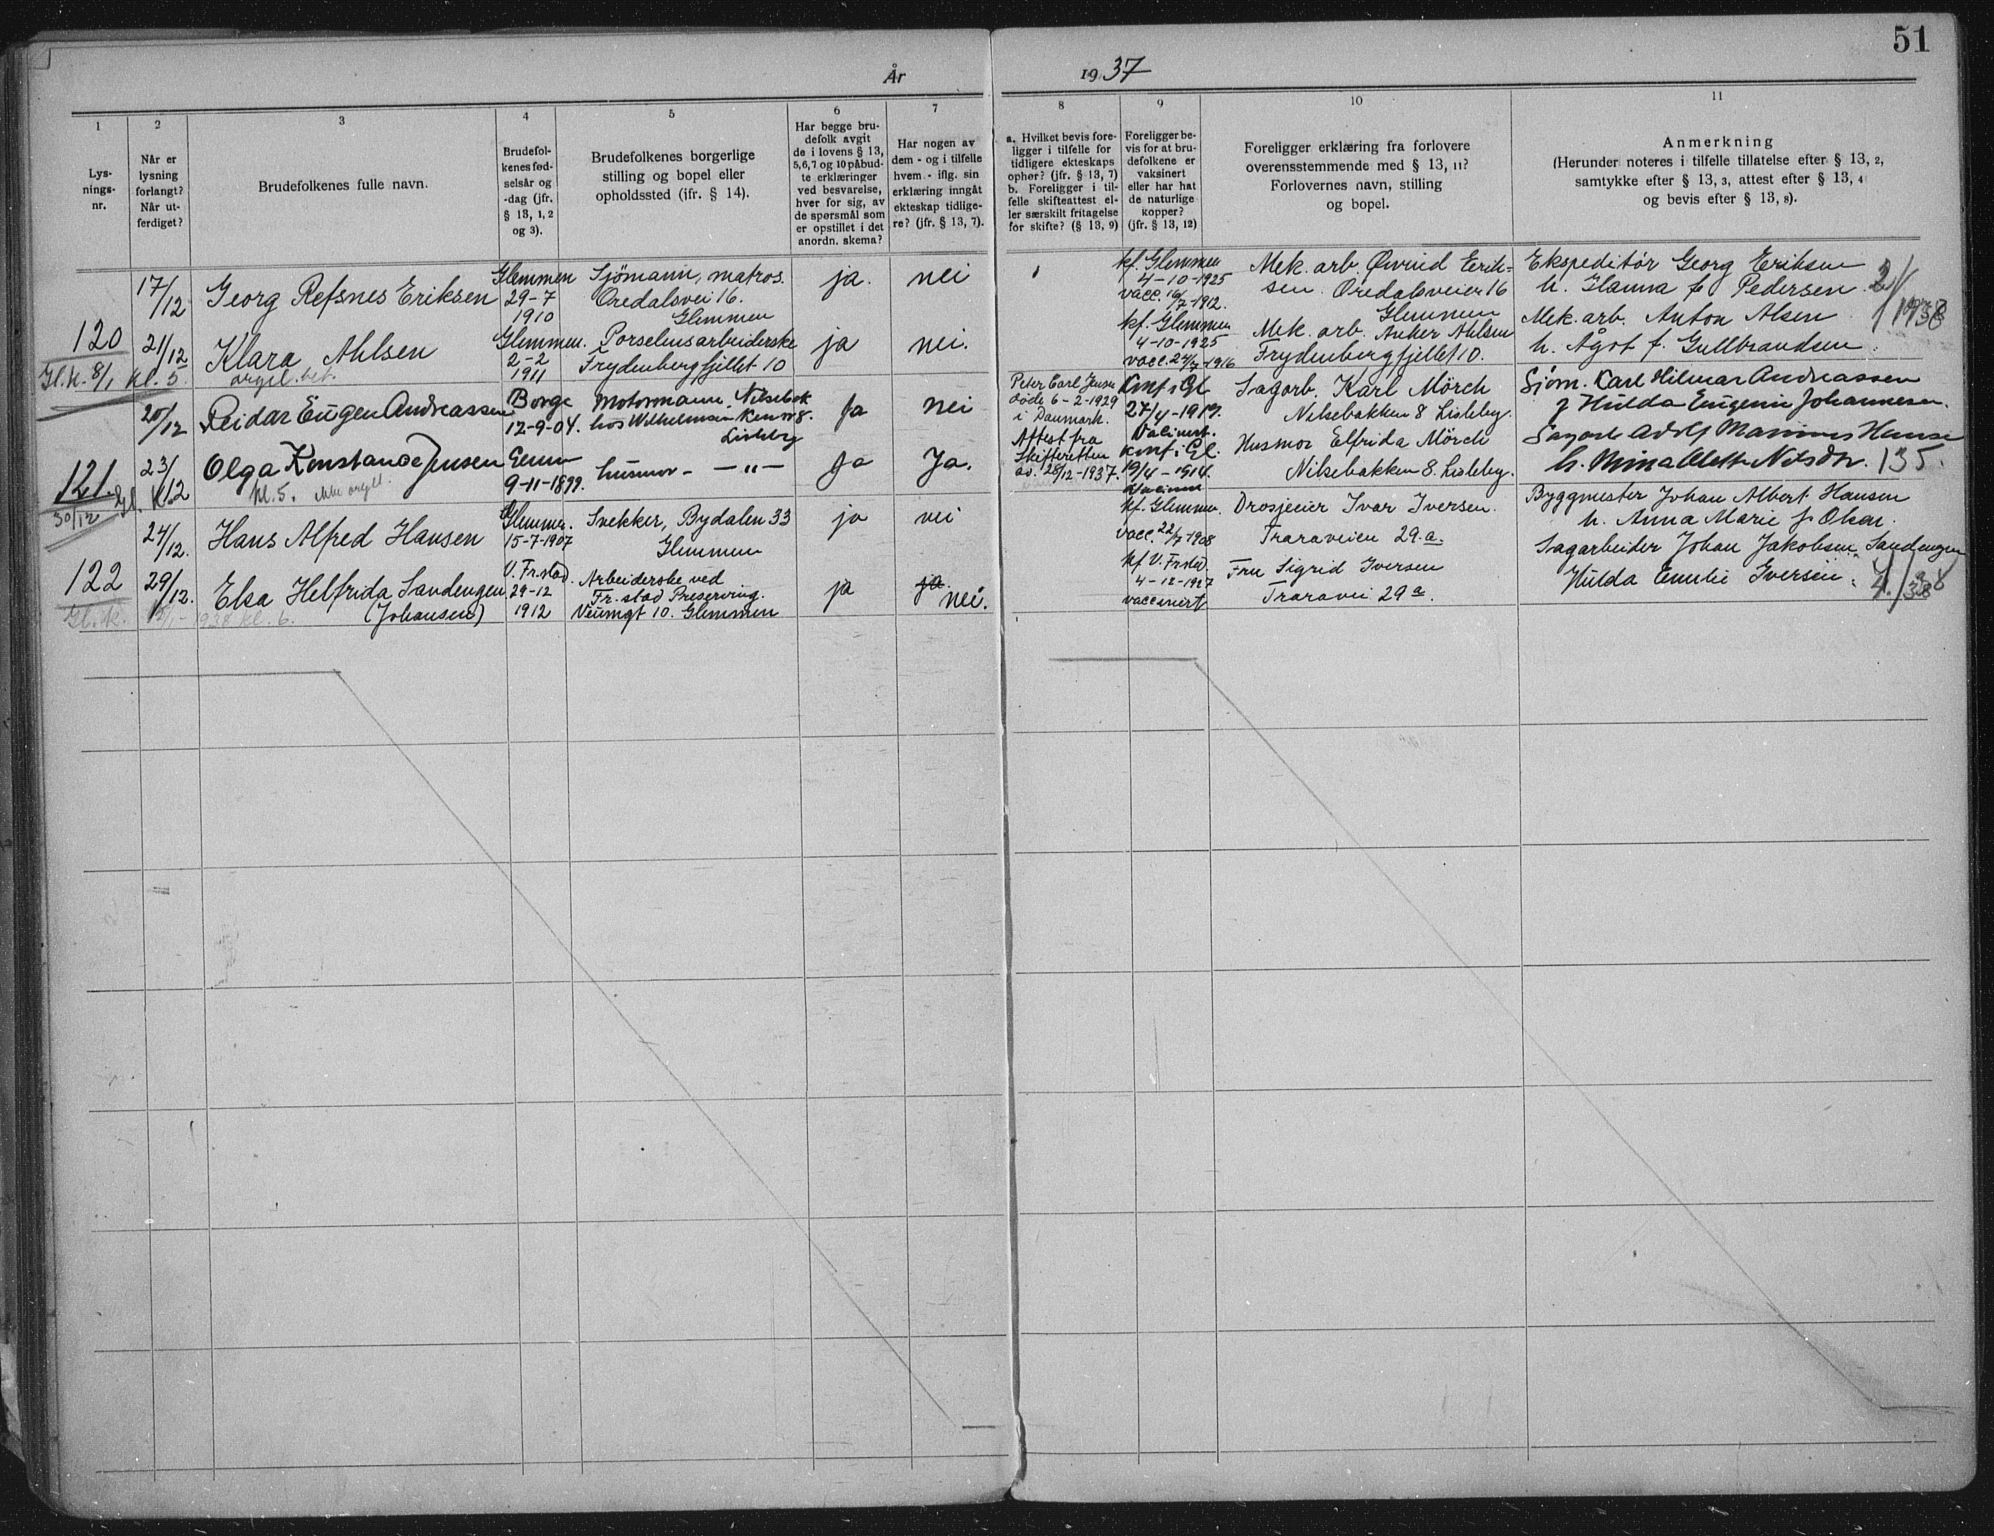 51
År 1937
1
2
3
4
5
6
7
8
9
10
11
Lys-
nings-
nr.
Når er
lysning
forlangt?
Når ut-
ferdiget?
Brudefolkenes fulle navn.
Brudefol-
kenes fød-
selsår og
-dag (jfr.
§ 13, 1, 2
og 3).
Brudefolkenes borgerlige
stilling og bopel eller
opholdssted (jfr. § 14).
Har begge bru-
defolk avgit
de i lovens § 13,
5, 6, 7 og 10 påbud-
te erklæringer
ved besvarelse,
hver for sig, av
de spørsmål som
er opstillet i det
anordn. skema?
Har nogen av
dem - og i tilfelle
hvem - iflg. sin
erklæring inngåt
ekteskap tidlige-
re? (jfr. § 13, 7).
a. Hvilket bevis fore-
ligger i tilfelle for
tidligere ekteskaps
ophør? (jfr. § 13, 7)
b. Foreligger i til-
felle skifteattest el-
ler særskilt fritagelse
for skifte? (§ 13, 9)
Foreligger be-
vis for at bru-
defolkene er
vaksinert
eller har hat
de naturlige
kopper?
(jfr. § 13, 12)
Foreligger erklæring fra forlovere
overensstemmende med § 13, 11?
Forlovernes navn, stilling
og bopel.
Anmerkning
(Herunder noteres i tilfelle tillatelse efter § 13, 2,
samtykke efter § 13, 3, attest efter § 13, 4
og bevis efter § 13, 8).
120
17/12
Georg Refsnes Eriksen
Glemmen
29-7
1910
Sjömann, matros.
Oredalsvei 16.
Glemmen
ja.
nei
kf. Glemmen
4-10-1925
vacc. 16/7-1912.
Mek. arb. Øivind Erik-
sen. Oredalsveien 16
Glemmen
Ekspeditør Georg Eriksen
h. Hanna f. Pedersen
2/1 1938
21/12
Klara Ahlsen
orgel. bet.
Glemmen.
2-2
1911
Porselensarbeiderske
Frydenbergfjellet 10
ja
nei.
kf. Glemmen
4-10-1925
vacc. 24/7-1916
Mek. arb. Anker Ahlsen
Frydenbergfjellet 10.
Mek. arb. Anton Alsen
h. Ågot f. Gullbrandsen.
Gl. k. 8/1 kl. 5.
121.
20/12
Reidar Eugen Andreassen
Borge
12-9-04.
Motormann. Nilsebak
hos Wilhelmsen 8.
Lisleby
Ja
nei
Peter Carl Jensen
døde 6-2-1929
i Danmark.
Attest fra
Skifteretten
av. 28/12-1937.
Konf. i Gl.
Sagarb. Karl Mörch
Nilsebakken 8 Lisleby.
Sjöm. Karl Hilmar Andreassen
Hulda Eugenie Johannesen.
23/12
Olga Konstance Jensen
kl. 5. ikke orgel
9-11-1899.
husmor - -"-
Ja
Ja.
Konf. i Gl.
19/4-1914.
Husmor Elfrida Mörch
Nilsebakken 8. Lisleby.
Adolf Hansen
135.
30/12 Gl. K.
122
24/12.
Hans Alfred Hansen
Glemmen.
15-7-1907
Svekker, Bydalen 33
Glemmen
ja
nei
kf. Glemmen.
vacc. 22/7-1908
Drosjeeier Ivar Iversen.
Traraveien 29.a.
Byggmester Johan Albert Hansen
h. Anna Marie f. Olsen.
29/12.
Elsa Helfrida Sandengen
(Johansen)
V. Fr.stad.
29-12
1912
Arbeiderske ved
Fr.stad Preserving.
Veumgt 10. Glemmen
ja
ja
nei.
kf V. Fr.stad.
4-12-1927
vaccinert
Fru Sigrid Iversen
Traravei 29a.
Sagarbeider Johan Jakobsen Sandengen
Hulda Emilie Iversen.
Gl. k. 1938 kl. 6.